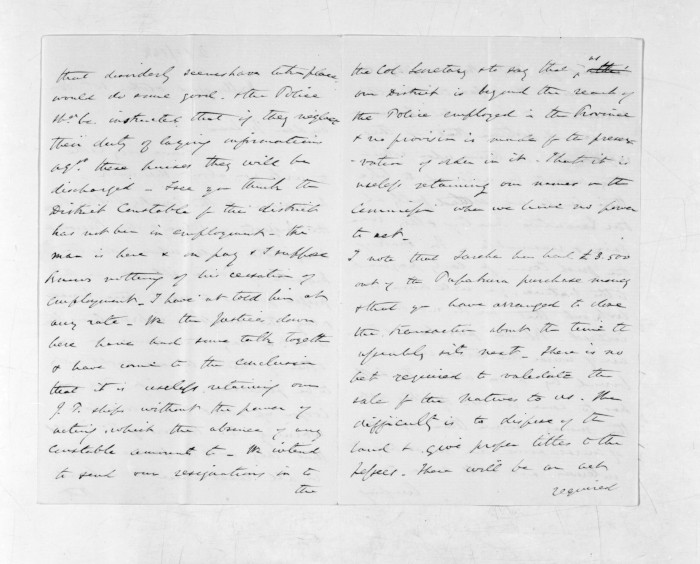 that disorderly scenes have taken place
would do some good. & the Police
shd. be instructed that if they neglect
their duty of laying informations
agst. these houses they will be
discharged - I see you think the
District Constable for this district
has not been in employment - the
man is here & on pay & I suppose
knows nothing of his cessation of
employment - I have nt told him at
any rate - We the Justices down
here have had some talk together
& have come to the conclusion
that it is useless retaining our
J.P. ships without the power of
acting which the absence of any
Constable amounts to - We intend
to send our resignations in to
the
the Col. Secretary & to say that as
our District is beyond the reach of
the Police employed in the Province
& no provision is made for the preser
-vation of order in it - that it is
useless retaining our names on the
Commission when we have no power
to act -
I note that has had £3.500
out of the purchase money
& that you have arranged to close
the transaction about the time the
assembly sits next - There is no
act required to validate the
sale of the Natives to us. The
difficulty is to dispose of the
land & give proper titles to the
. There will be an act
required